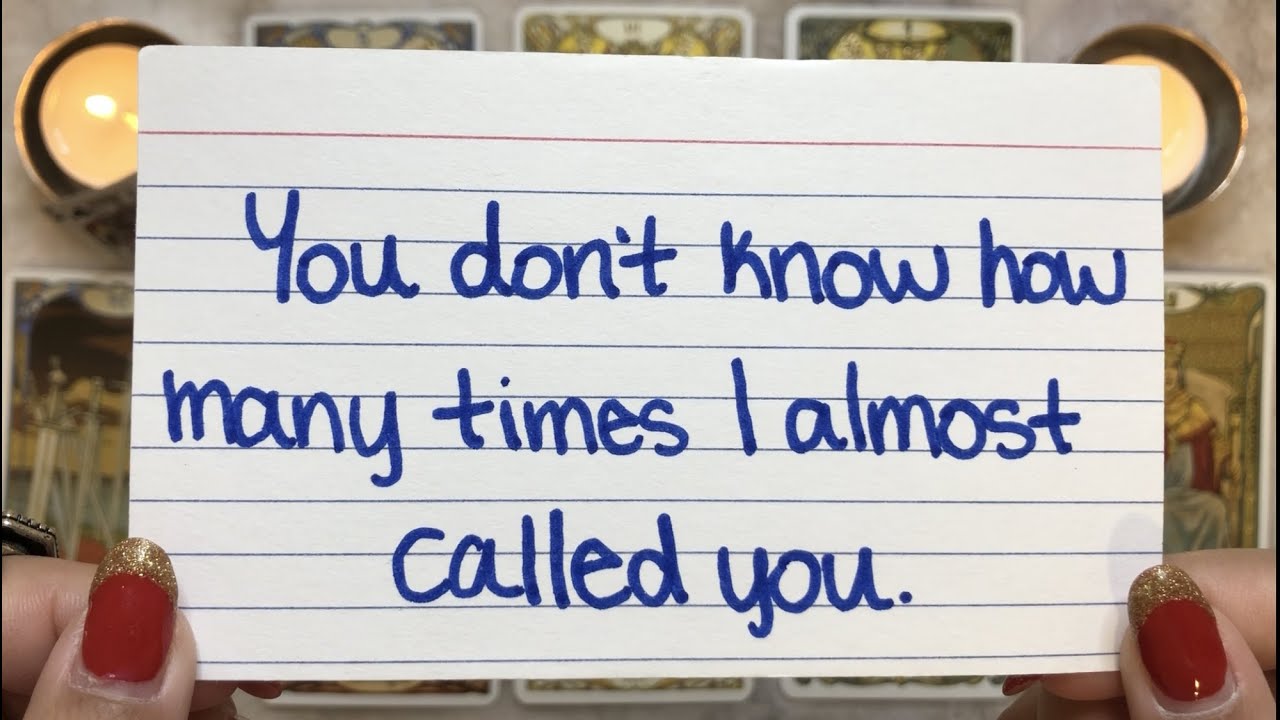 You don't know how
many times I almost
called you.